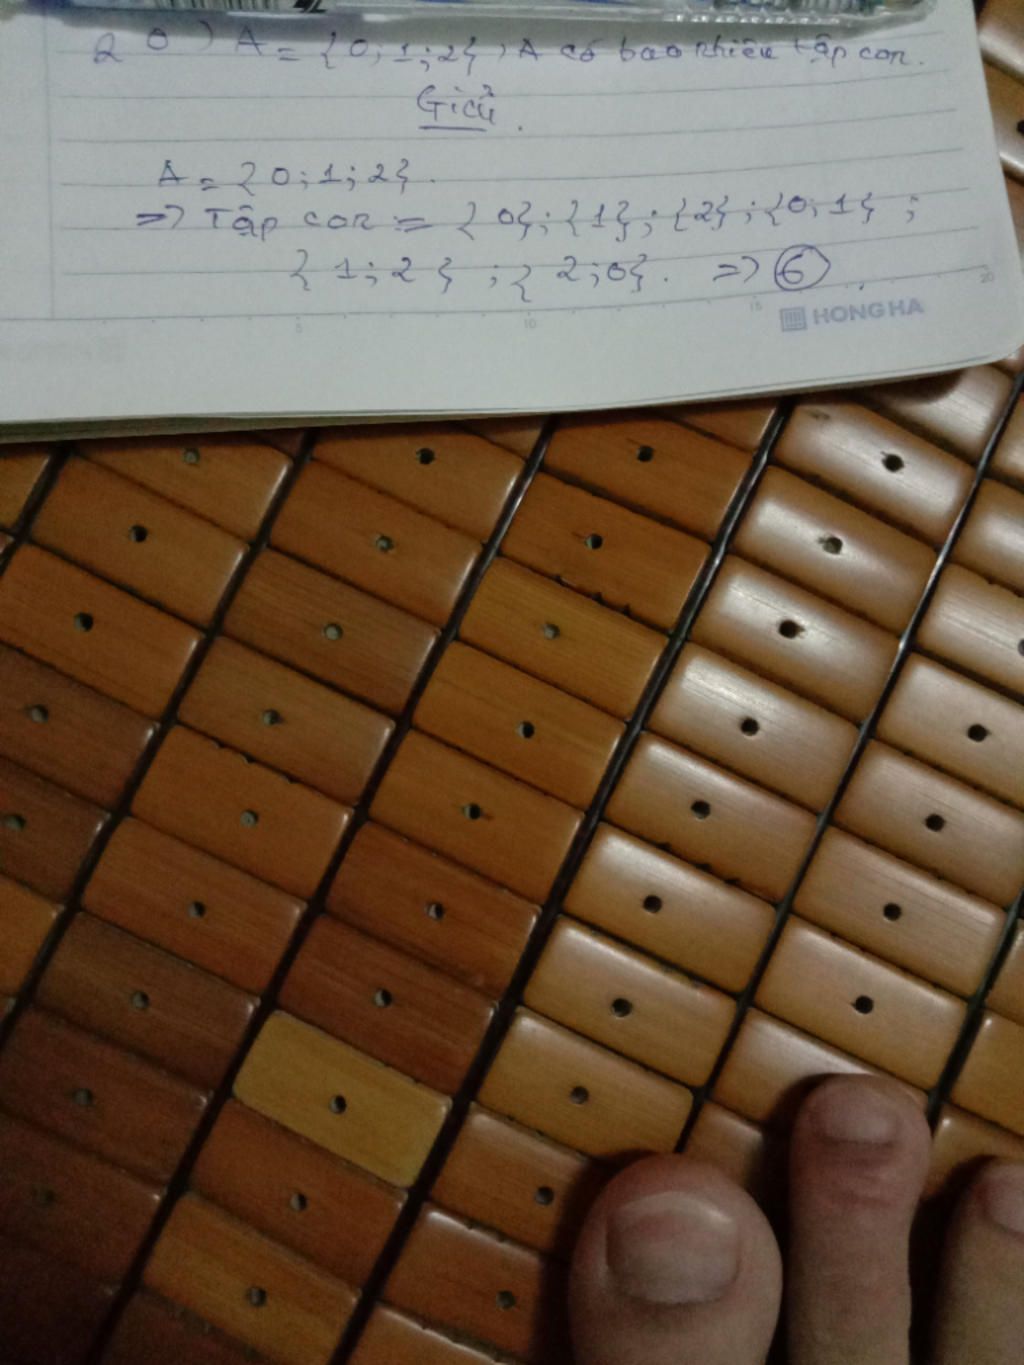 20) A = {0; 1; 2}, A có bao nhiêu tập con.
Giải.
A = {0; 1; 2}.
=> Tập con = {0}; {1}; {2}; {0; 1} ;
{1; 2} ; {2; 0}. => 6.
5 10 15 20
HONG HA